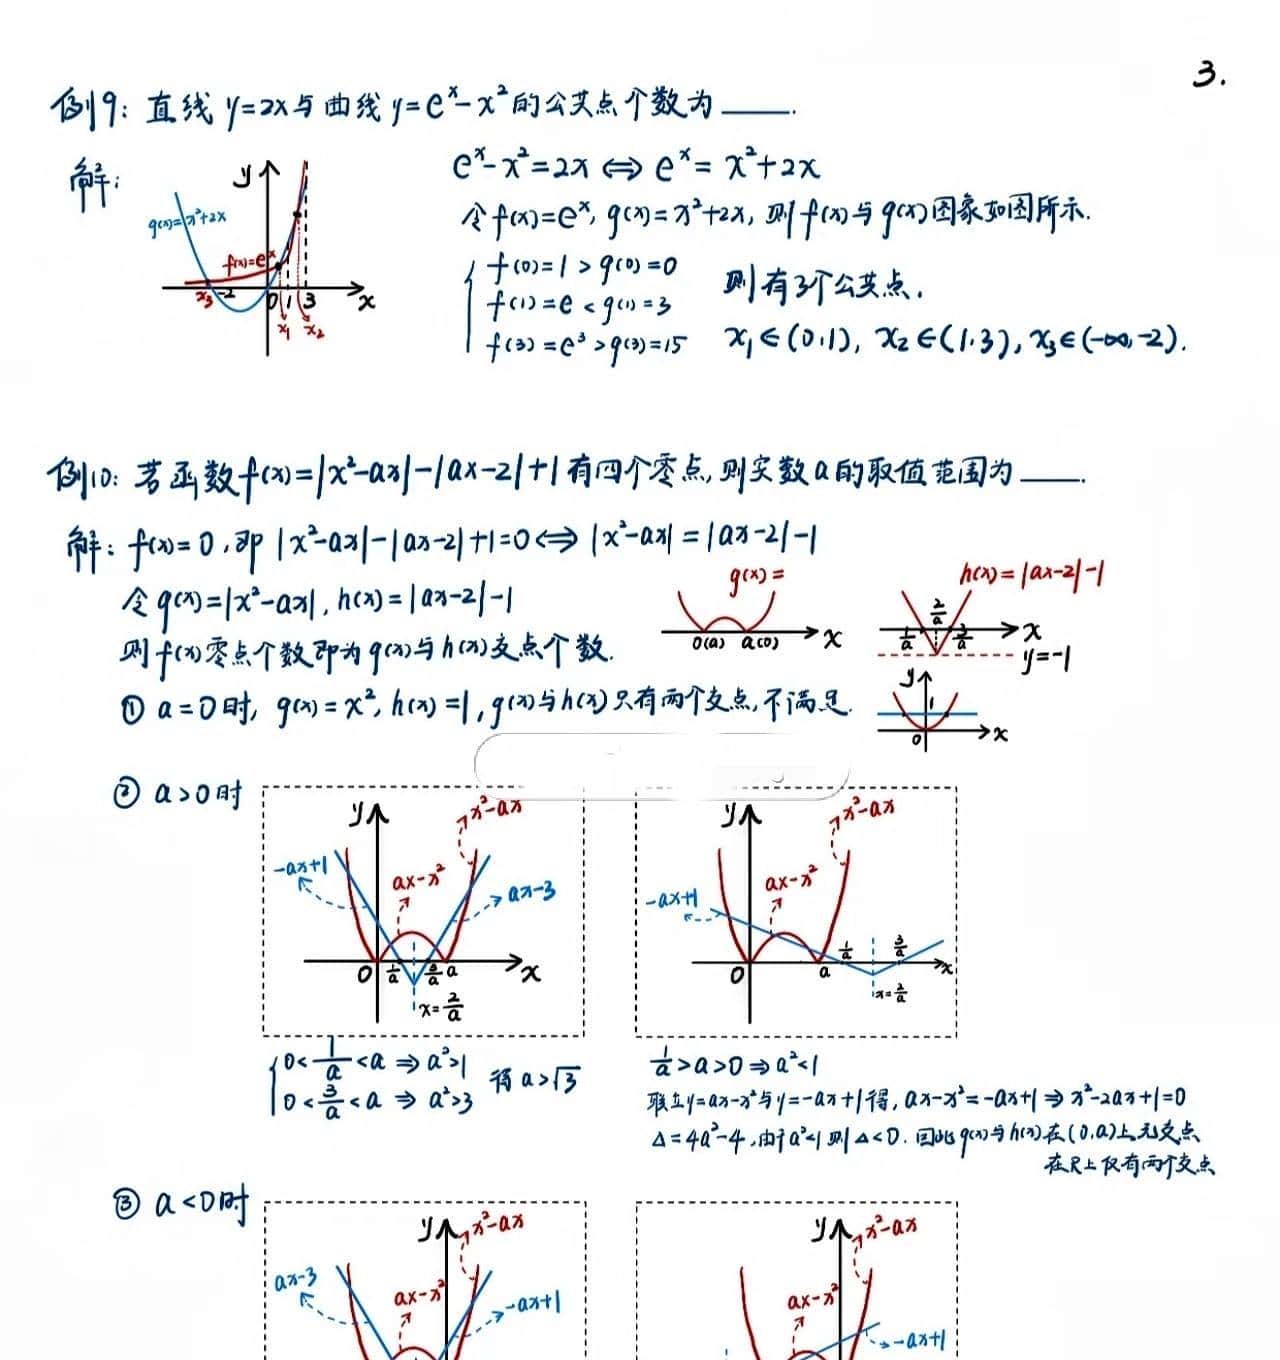 3.
例9：直线y=2x与曲线y=eˣ-x²的公共点个数为____.
解：
y
g(x)=x²+2x
f(x)=eˣ
x₃ -2 0 1 3 x
x₁ x₂
eˣ-x²=2x⇔eˣ=x²+2x
令f(x)=eˣ, g(x)=x²+2x, 则f(x)与g(x)图象如图所示.
f(0)=1>g(0)=0
f(1)=e<g(1)=3
f(3)=e³>g(3)=15
则有3个公共点.
x₁∈(0,1), x₂∈(1,3), x₃∈(-∞,-2).
例10：若函数f(x)=|x²-ax|-|ax-2|+1有四个零点,则实数a的取值范围为____.
解：f(x)=0,即|x²-ax|-|ax-2|+1=0⇔|x²-ax|=|ax-2|-1
令g(x)=|x²-ax|, h(x)=|ax-2|-1
则f(x)零点个数即为g(x)与h(x)交点个数.
g(x)=
0(a) a(0) x
h(x)=|ax-2|-1
1/a 2/a 3/a x
y=-1
① a=0时, g(x)=x², h(x)=1, g(x)与h(x)只有两个交点,不满足.
y
1
0 x
② a>0时
y x²-ax
-ax+1 ax-x² ax-3
0 1/a 3/a a x
x=2/a
y x²-ax
-ax+1 ax-x²
0 a 1/a 3/a x
x=2/a
0<1/a<a ⇒ a²>1
0<3/a<a ⇒ a²>3
得a>√3
1/a>a>0⇒a²<1
联立y=ax-x²与y=-ax+1得, ax-x²=-ax+1⇒x²-2ax+1=0
Δ=4a²-4,由于a²<1则Δ<0. 因此g(x)与h(x)在(0,a)上无交点
在R上仅有两个交点
③ a<0时
y x²-ax
ax-3 ax-x² -ax+1
y x²-ax
ax-x² -ax+1